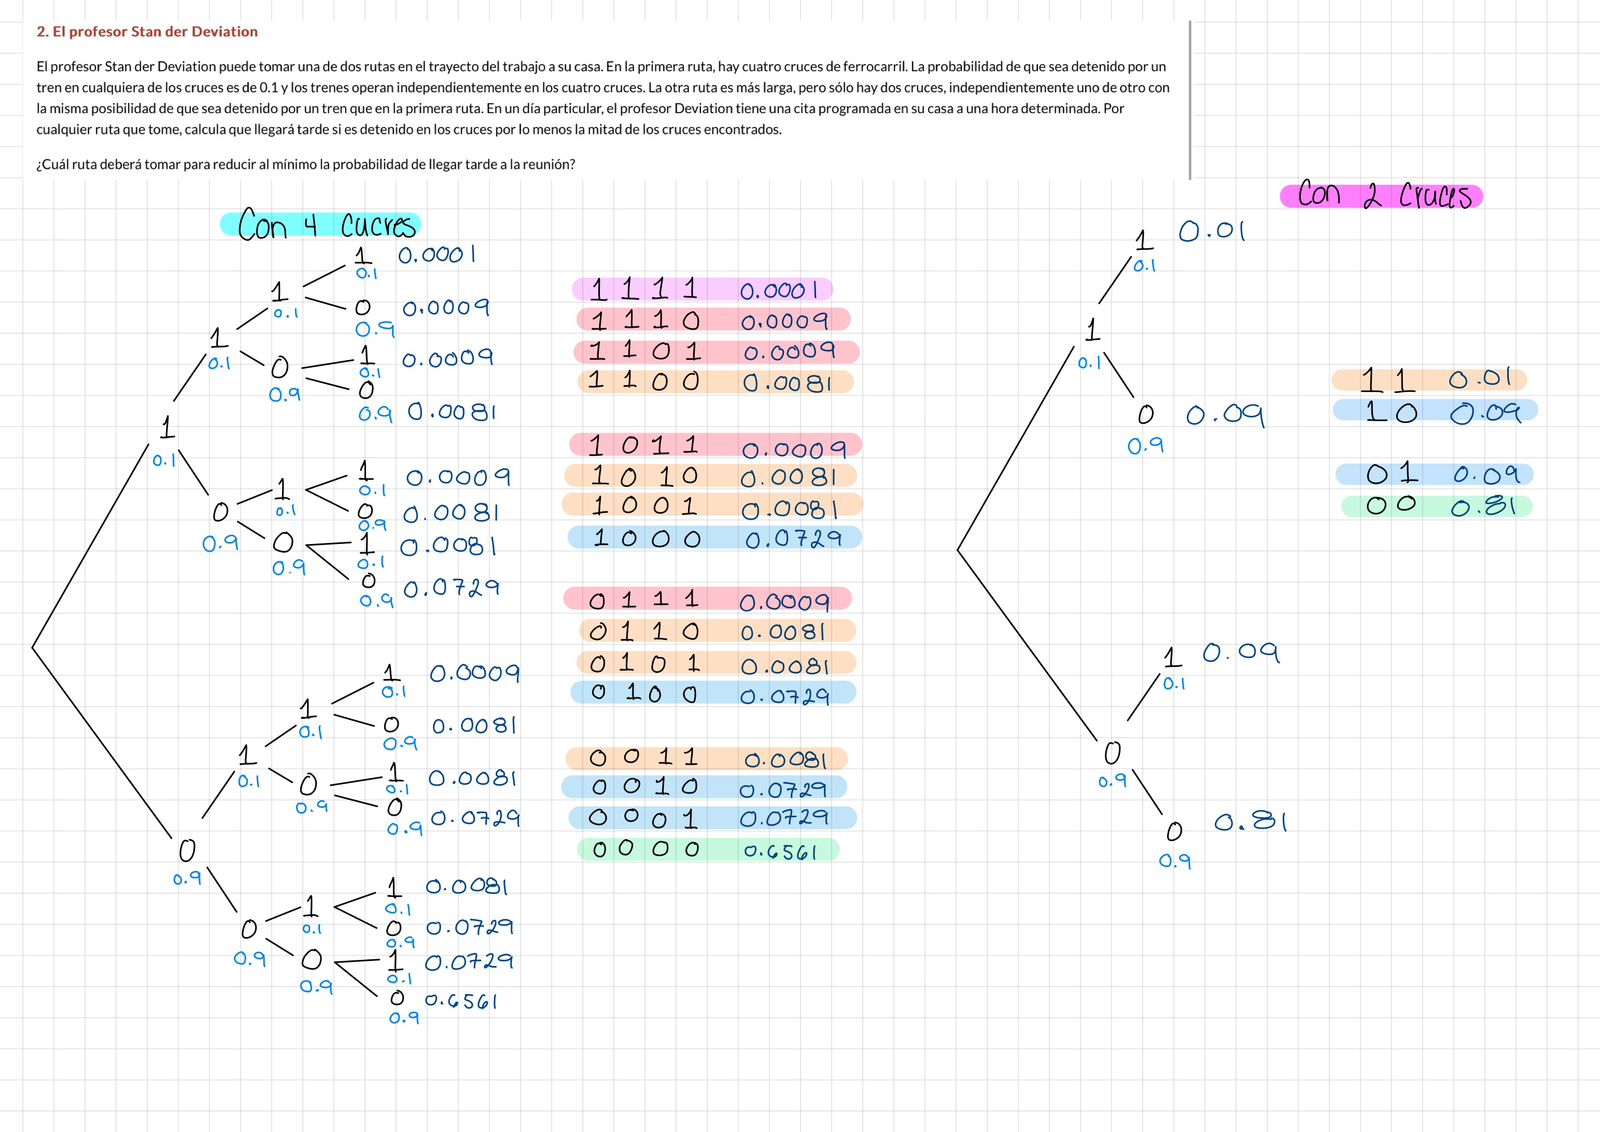 2. El profesor Stan der Deviation
El profesor Stan der Deviation puede tomar una de dos rutas en el trayecto del trabajo a su casa. En la primera ruta, hay cuatro cruces de ferrocarril. La probabilidad de que sea detenido por un
tren en cualquiera de los cruces es de 0.1 y los trenes operan independientemente en los cuatro cruces. La otra ruta es más larga, pero sólo hay dos cruces, independientemente uno de otro con
la misma posibilidad de que sea detenido por un tren que en la primera ruta. En un día particular, el profesor Deviation tiene una cita programada en su casa a una hora determinada. Por
cualquier ruta que tome, calcula que llegará tarde si es detenido en los cruces por lo menos la mitad de los cruces encontrados.
¿Cuál ruta deberá tomar para reducir al mínimo la probabilidad de llegar tarde a la reunión?
Con 4 cucres
1 0.0001
0.1
1
0.1
0 0.0009
0.9
1
0.1
1 0.0009
0.1
0
0.9
0
0.9 0.0081
1
0.1
1 0.0009
0.1
1
0.1
0 0.0081
0.9
0
0.9
1 0.0081
0.1
0
0.9
0 0.0729
0.9
1 0.0009
0.1
1
0.1
0 0.0081
0.9
1
0.1
1 0.0081
0.1
0
0.9
0 0.0729
0.9
0
0.9
1 0.0081
0.1
1
0.1
0 0.0729
0.9
0
0.9
1 0.0729
0.1
0
0.9
0 0.6561
0.9
1 1 1 1 0.0001
1 1 1 0 0.0009
1 1 0 1 0.0009
1 1 0 0 0.0081
1 0 1 1 0.0009
1 0 1 0 0.0081
1 0 0 1 0.0081
1 0 0 0 0.0729
0 1 1 1 0.0009
0 1 1 0 0.0081
0 1 0 1 0.0081
0 1 0 0 0.0729
0 0 1 1 0.0081
0 0 1 0 0.0729
0 0 0 1 0.0729
0 0 0 0 0.6561
Con 2 cruces
1 0.01
0.1
1
0.1
0 0.09
0.9
1 0.09
0.1
0
0.9
0 0.81
0.9
1 1 0.01
1 0 0.09
0 1 0.09
0 0 0.81